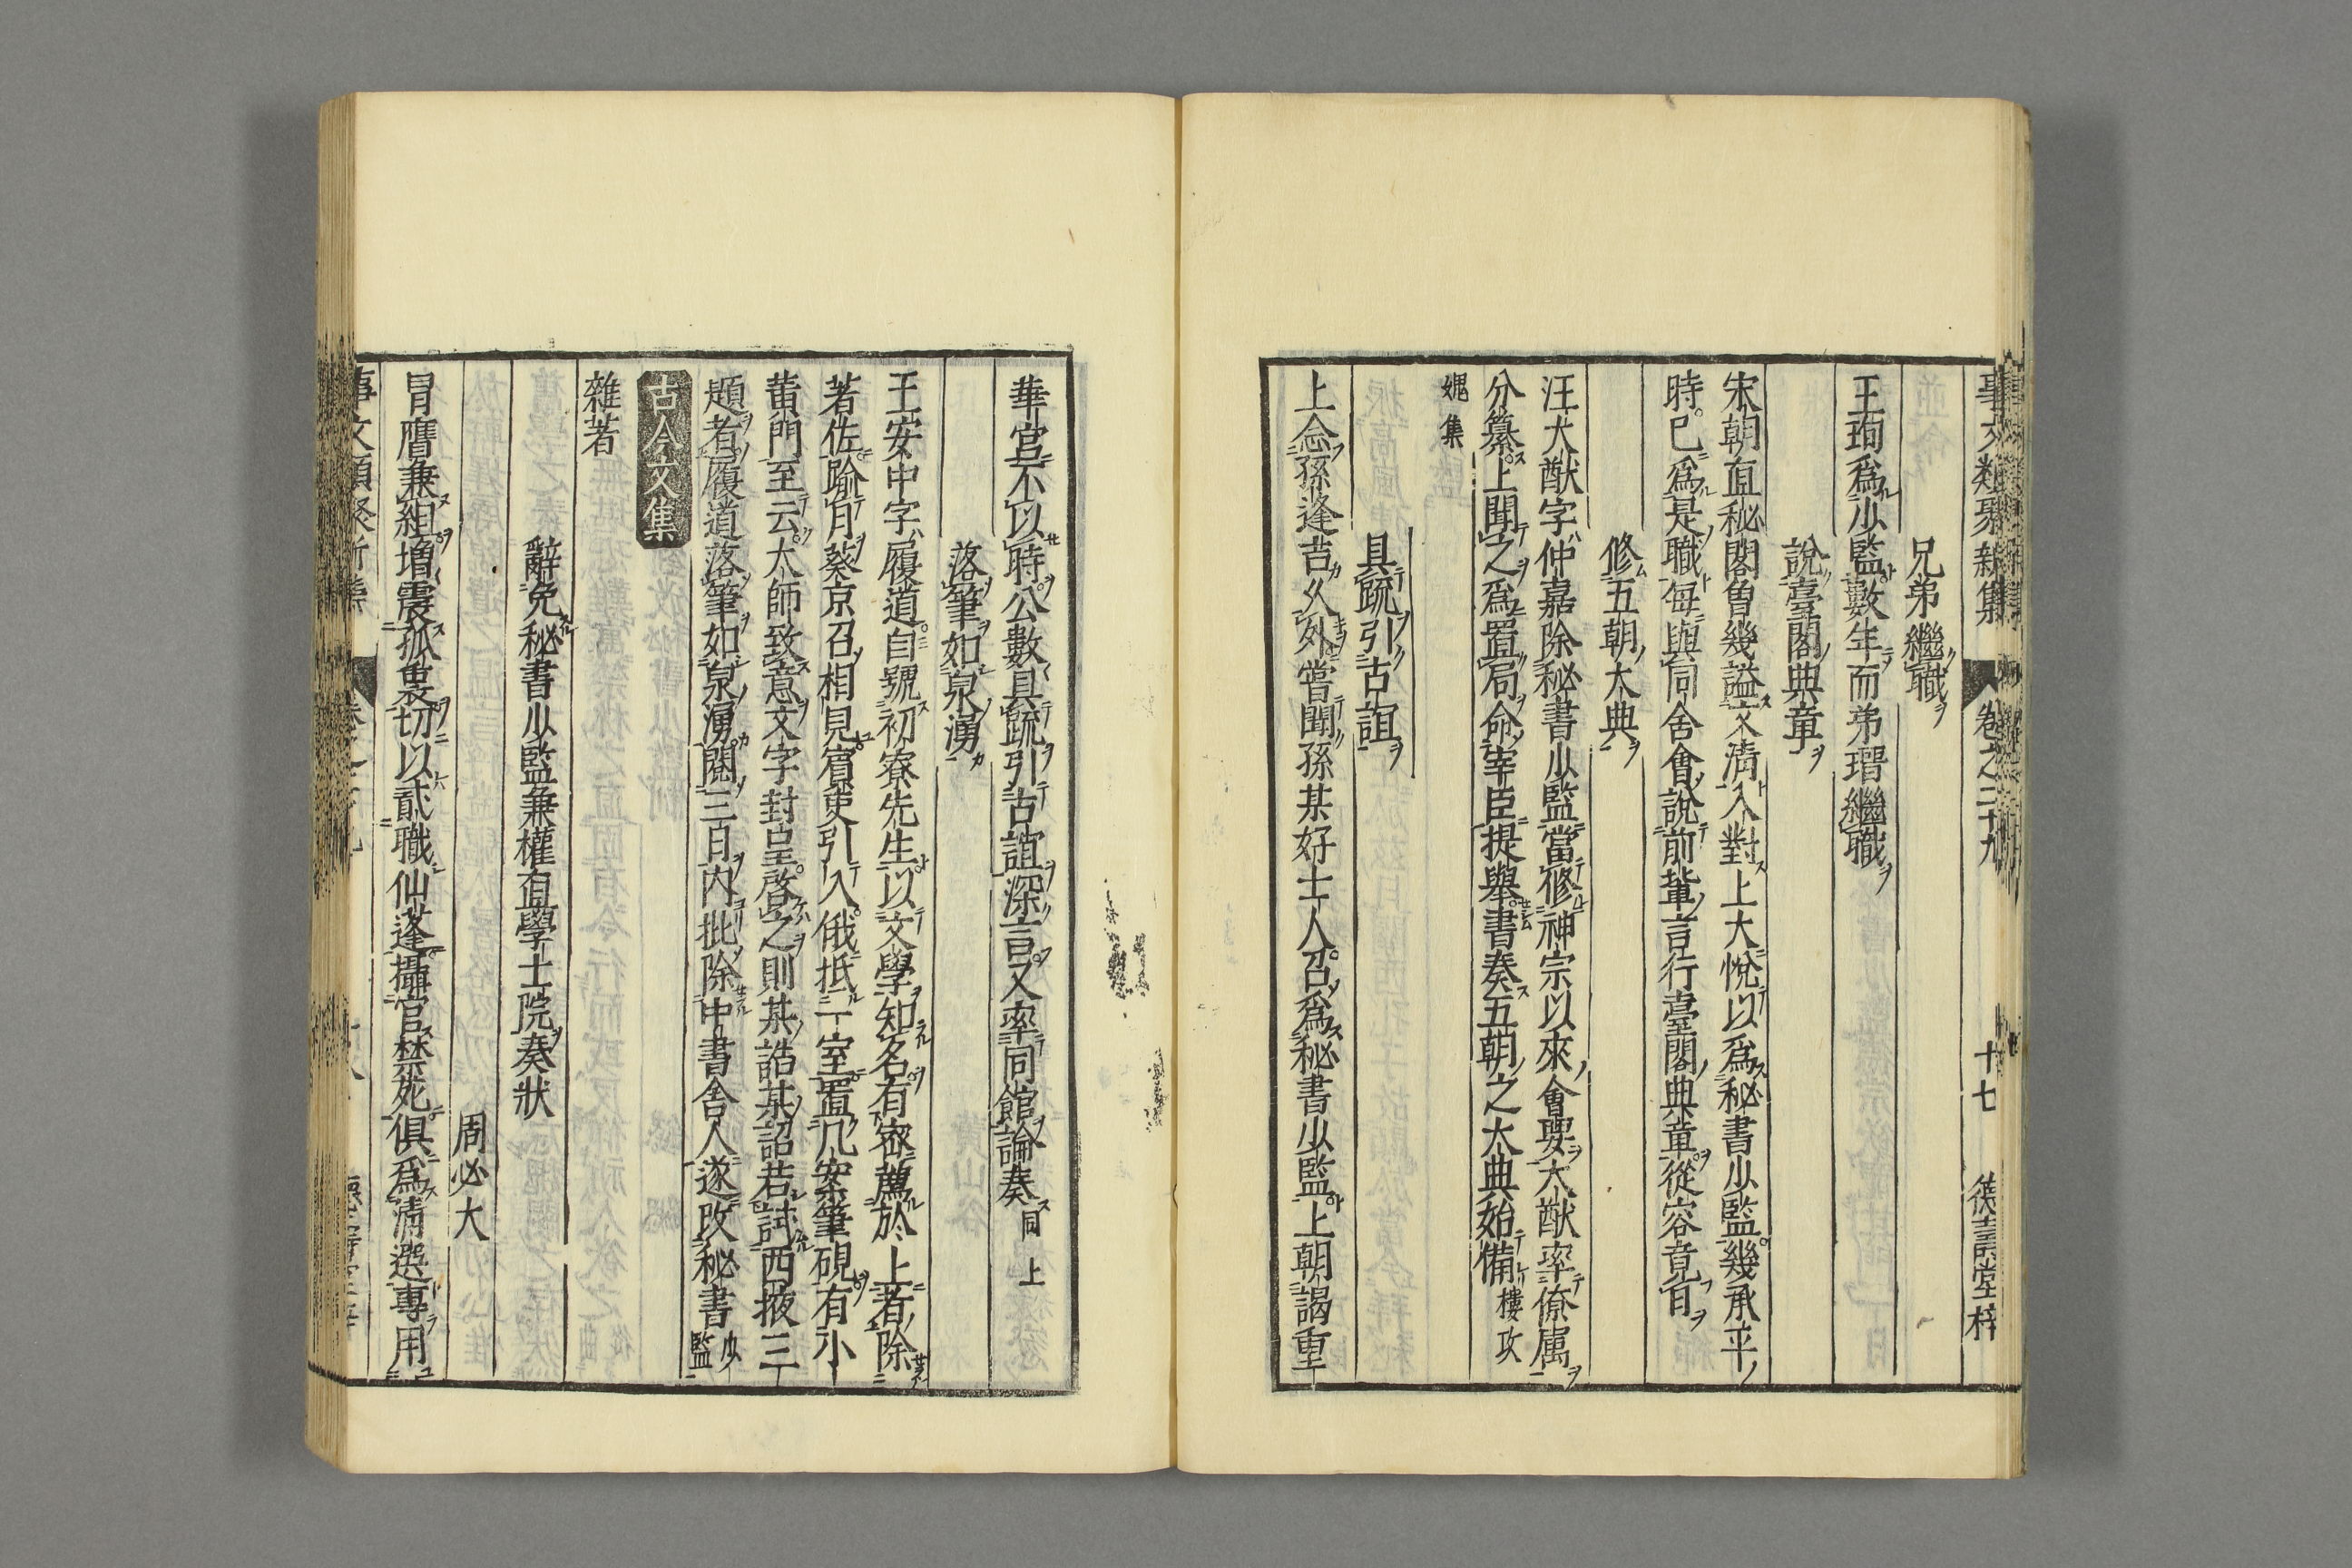 事文類聚新集 卷之二十九 十七 德壽堂梓
兄弟繼職
王珣爲少監數年而弟瑉繼職
說臺閣典章
宋朝直秘閣曾幾謚文淸入對上大悅以爲秘書少監幾承平
時已爲是職每與同舍會說前輩言行臺閣典章從容竟日
修五朝大典
汪大猷字仲嘉除秘書少監當修神宗以來會要大猷率僚属
分纂上聞之爲置局命宰臣提舉書奏五朝之大典始備樓攻
媿集
具疏引古誼
上念孫逢吉久外嘗聞孫某好士人召爲秘書少監上朝謁重
華宮不以時公數具疏引古誼深言又率同館論奏同上
落筆如泉湧
王安中字履道自號初寮先生以文學知名有密薦於上者除
著佐踰月蔡京召相見賓吏引入俄抵一室置几案筆硯有小
黃門至云太師致意文字封呈啓之則某誥某詔若試西掖三
題者履道落筆如泉湧閱三日内批除中書舍人遂改秘書少監
古今文集
雜著
辭免秘書少監兼權直學士院奏狀
周必大
冐膺兼組增震孤衷切以貳職仙蓬攝官禁苑俱爲淸選專用